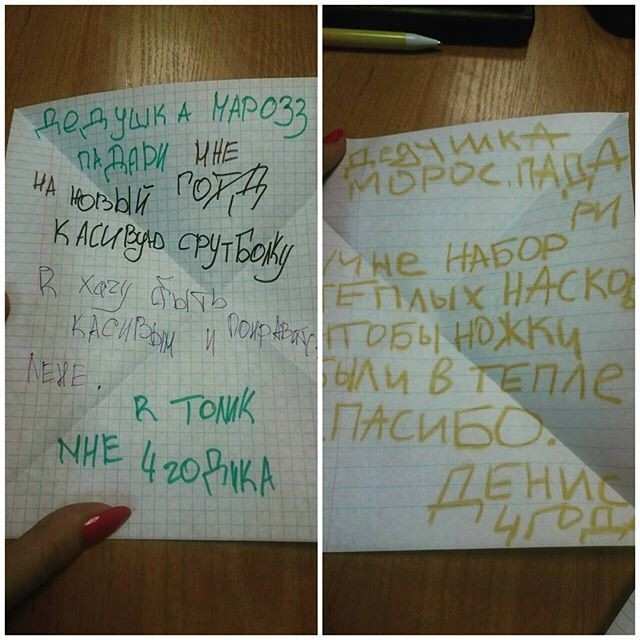 ДЕДУШКА МАРОЗЗ
ПАДАРИ МНЕ
НА НОВЫЙ ГОТД
КАСИВУЮ СРУТБОЛКУ
R хачу быть
КАСИВЫМ И
ЛЕНЕ.
R ТОЛИК
МНЕ 4 годика
ДЕДУШКА
МОРОС. ПАДА
РИ
НАБОР
ТЕПЛЫХ НАСКОВ
ЧТОБЫ НОЖКИ
БЫЛИ В ТЕПЛЕ
СПАСИБО.
ДЕНИС
4 ГОДА